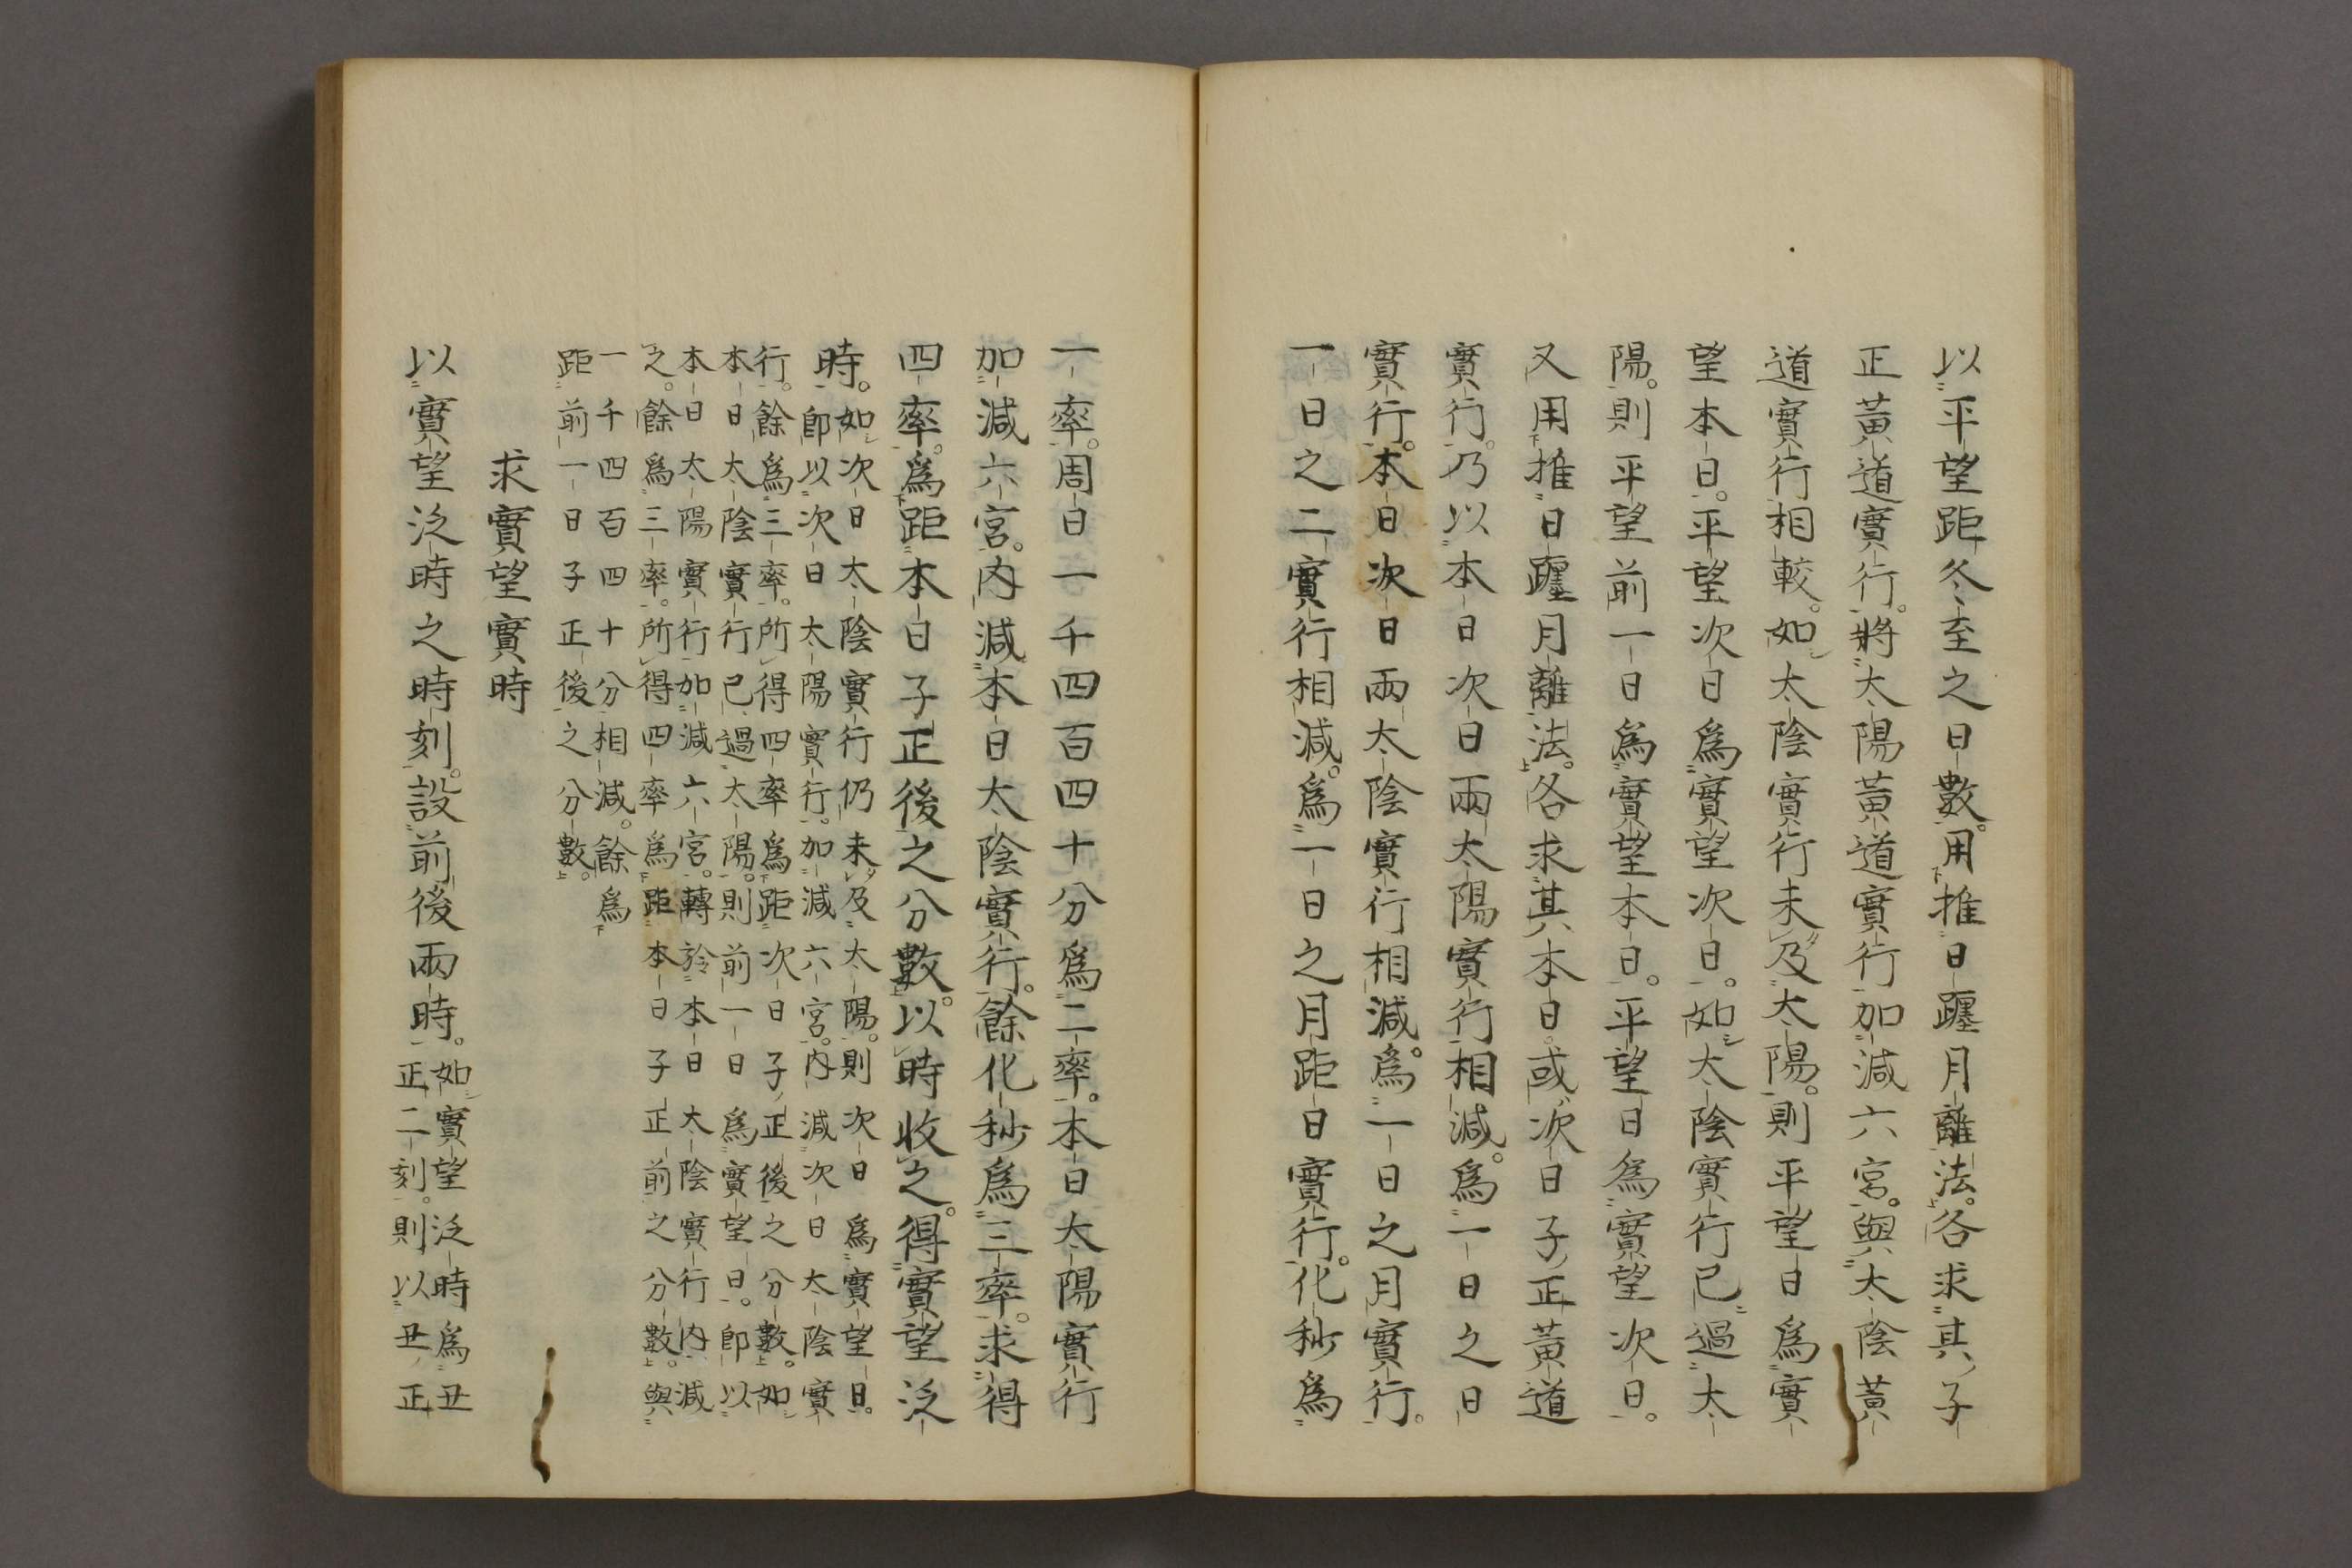 以平望距冬至之日數。用推日躔月離法。各求其子
正黃道實行。將太陽黃道實行加減六宮。與太陰黃
道實行相較。如太陰實行未及太陽。則平望日爲實
望本日。平望次日爲實望次日。如太陰實行已過太
陽。則平望前一日爲實望本日。平望日爲實望次日。
又用推日躔月離法。各求其本日。或次日子正黃道
實行。乃以本日次日兩太陽實行相減。爲一日之日
實行。本日次日兩太陰實行相減。爲一日之月實行。
一日之二實行相減。爲一日之月距日實行。化秒爲
一率。周日一千四百四十分爲二率。本日太陽實行
加減六宮。內減本日太陰實行。餘化秒爲三率。求得
四率。爲距本日子正後之分數。以時收之。得實望泛
時。如次日太陰實行仍未及太陽。則次日爲實望日。
即以次日太陽實行。加減六宮。內減次日太陰實
行。餘爲三率。所得四率爲距次日子正後之分數。如
本日太陰實行已過太陽。則前一日爲實望日。即以
本日太陽實行加減六宮。轉於本日太陰實行內減
之。餘爲三率。所得四率爲距本日子正前之分數。與
一千四百四十分相減。餘爲
距前一日子正後之分數。
求實望實時
以實望泛時之時刻。設前後兩時。如實望泛時爲丑
正二刻。則以丑正